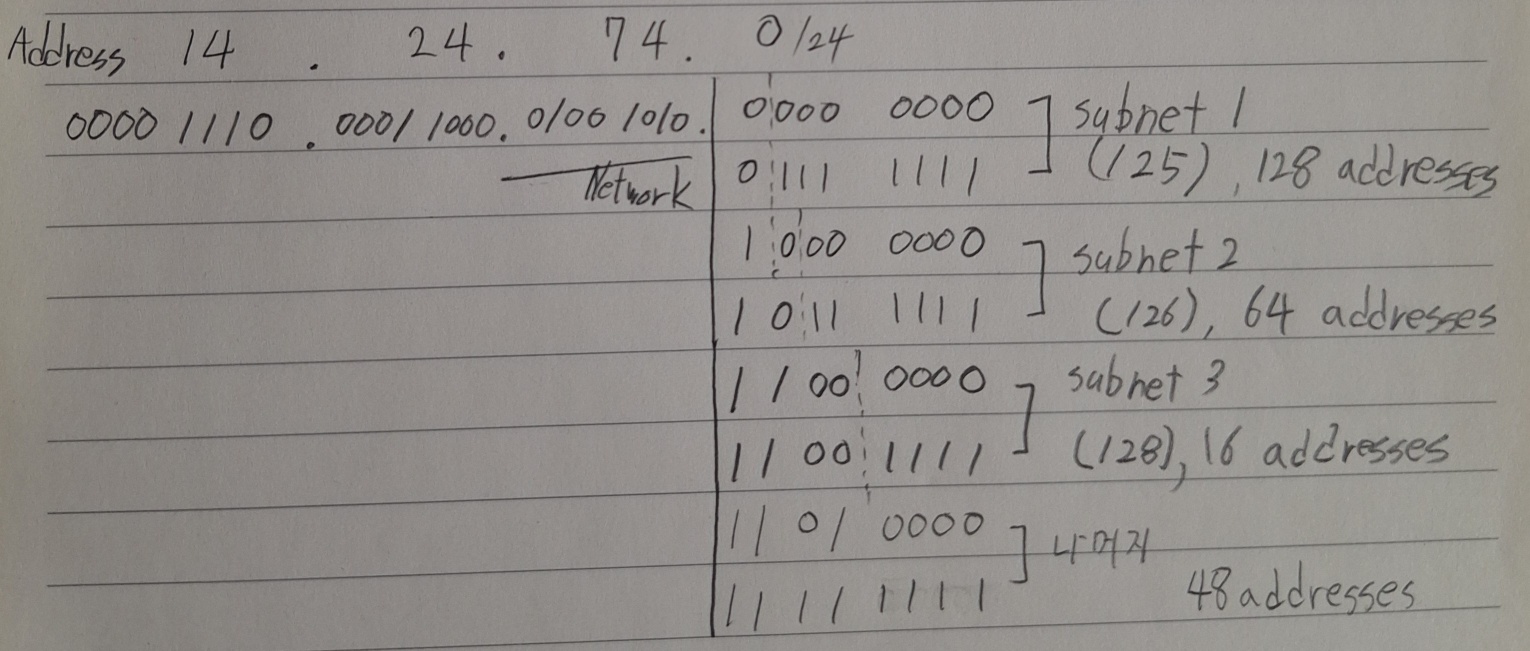 Address 14 . 24 . 74 . 0/24
0000 1110 . 0001 1000 . 0100 1010 . 0000 0000 subnet 1
Network 0111 1111 (125), 128 addresses
1000 0000 subnet 2
1011 1111 (126), 64 addresses
1100 0000 subnet 3
1100 1111 (128), 16 addresses
1101 0000 나머지
1111 1111 48 addresses